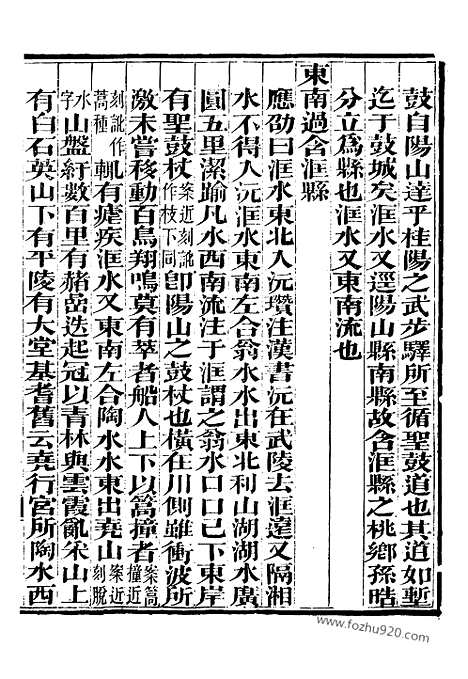 鼓自陽山達乎桂陽之武步驛所至循聖鼓道也其道如塹
迄于鼓城矣洭水又逕陽山縣南縣故含洭縣之桃鄉孫晧
分立為縣也洭水又東南流也
東南過含洭縣
應劭曰洭水東北入沅瓚注漢書沅在武陵去洭遠又隔湘
水不得入沅洭水東南左合翁水水出東北利山湖湖水廣
圓五里潔踰凡水西南流注于洭謂之翁水口口已下東岸
有聖鼓杖案近刻訛作枝下同卽陽山之鼓杖也橫在川側雖衝波所
激未嘗移動百鳥翔鳴莫有萃者船人上下以篙撞者案篙撞近
刻訛作蒿種輒有瘧疾洭水又東南左合陶水水東出堯山案近刻脫
水字山盤紆數百里有赭嵒迭起冠以青林與雲霞亂采山上
有白石英山下有平陵有大堂基耆舊云堯行宮所陶水西
www.fozhu920.com